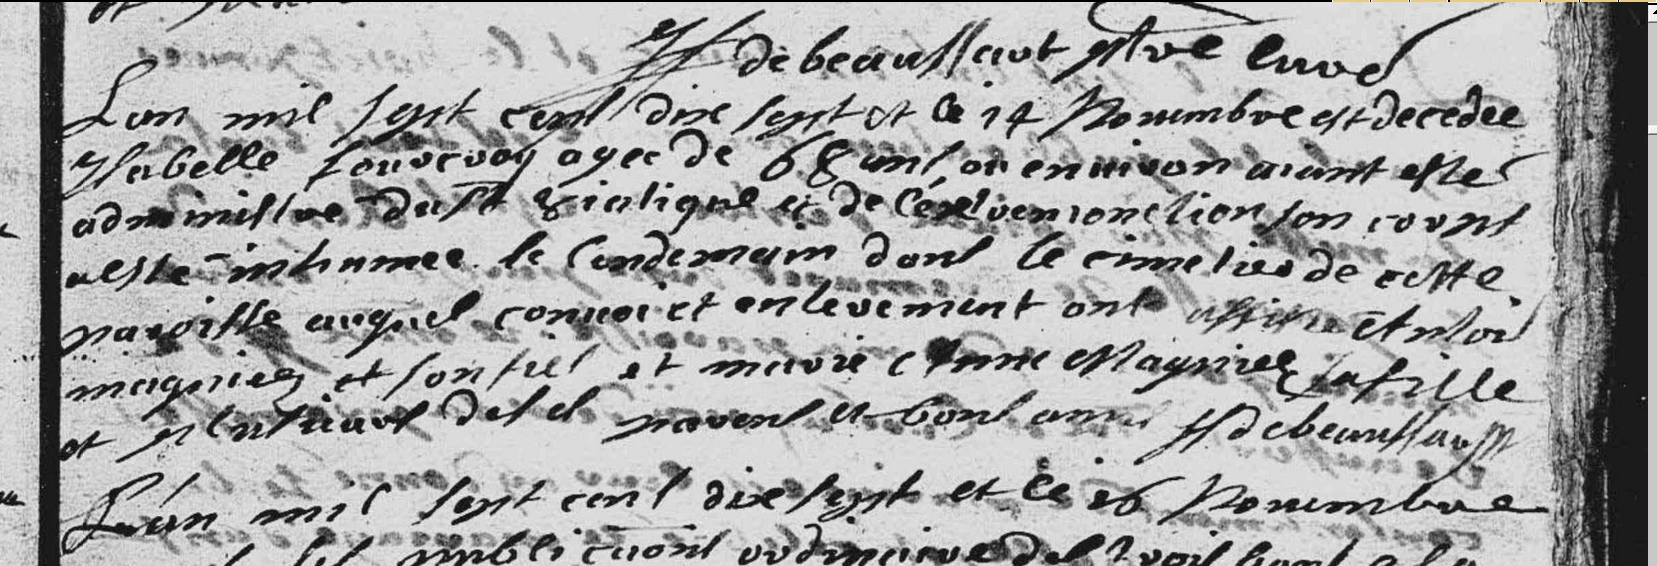 debeaussart ptre curé
Lan mil sept cent dix sept et le 14 Nouembre est decedee
ysabelle fourcroy agee de 68 ans ou enuiron aiant este
administre du st viatique et de lextremonction son corps
a este inhumee le lendemain dans le cimetiere de cette
paroisse auquel conuoi et enlevement ont assiste Antoine
magniez et son fils et marie Anne Magniez sa fille
et plusieurs de ses parens et bons amis debeaussart
Lan mil sept cent dix sept et le 16 Nouembre
les publications ordinaires